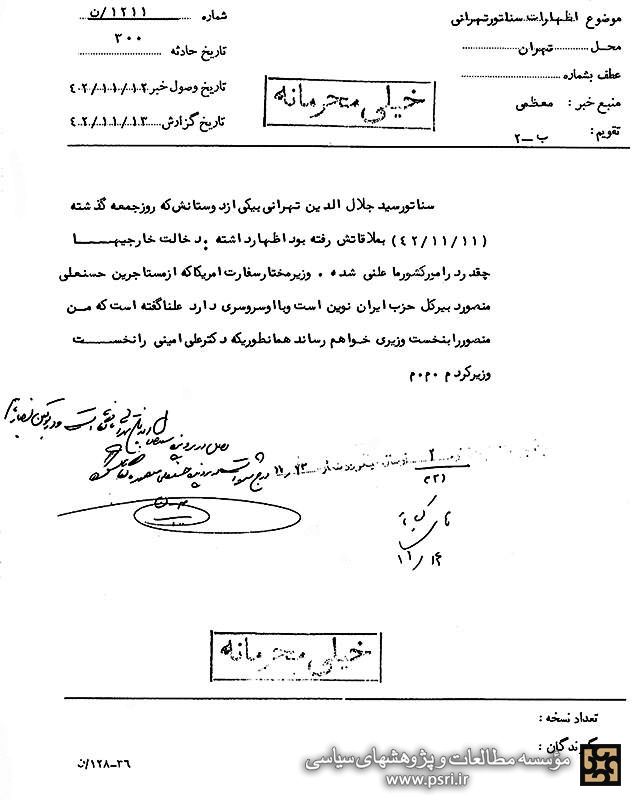 موضوع اظهارات سناتور تهرانی
شماره ۱۲۱۱/ن
محل تهران
تاریخ حادثه ۳۰۰
عطف بشماره
تاریخ وصول خبر ۴۲/۱۱/۱۲
منبع خبر : معظمی
تاریخ گزارش ۴۲/۱۱/۱۳
تقویم : ب-۲
خیلی محرمانه
سناتور سید جلال الدین تهرانی بیکی از دوستانش که روز جمعه گذشته
(۴۲/۱۱/۱۱) بملاقاتش رفته بود اظهار داشته : دخالت خارجیها
چقدر در امور کشور ما علنی شده . وزیر مختار سفارت امریکا که از مستاجرین حسنعلی
منصور دبیرکل حزب ایران نوین است و با او سروسری دارد علنا گفته است که من
منصور را بنخست وزیری خواهم رساند همانطوریکه دکتر علی امینی را نخست
وزیر کردم م۰م۰م
۲
۲۳۱
۱۱/۱۴
خیلی محرمانه
تعداد نسخه :
گیرندگان :
۳۶-۱۲۸/ن
مؤسسه مطالعات و پژوهشهای سیاسی
www.psri.ir